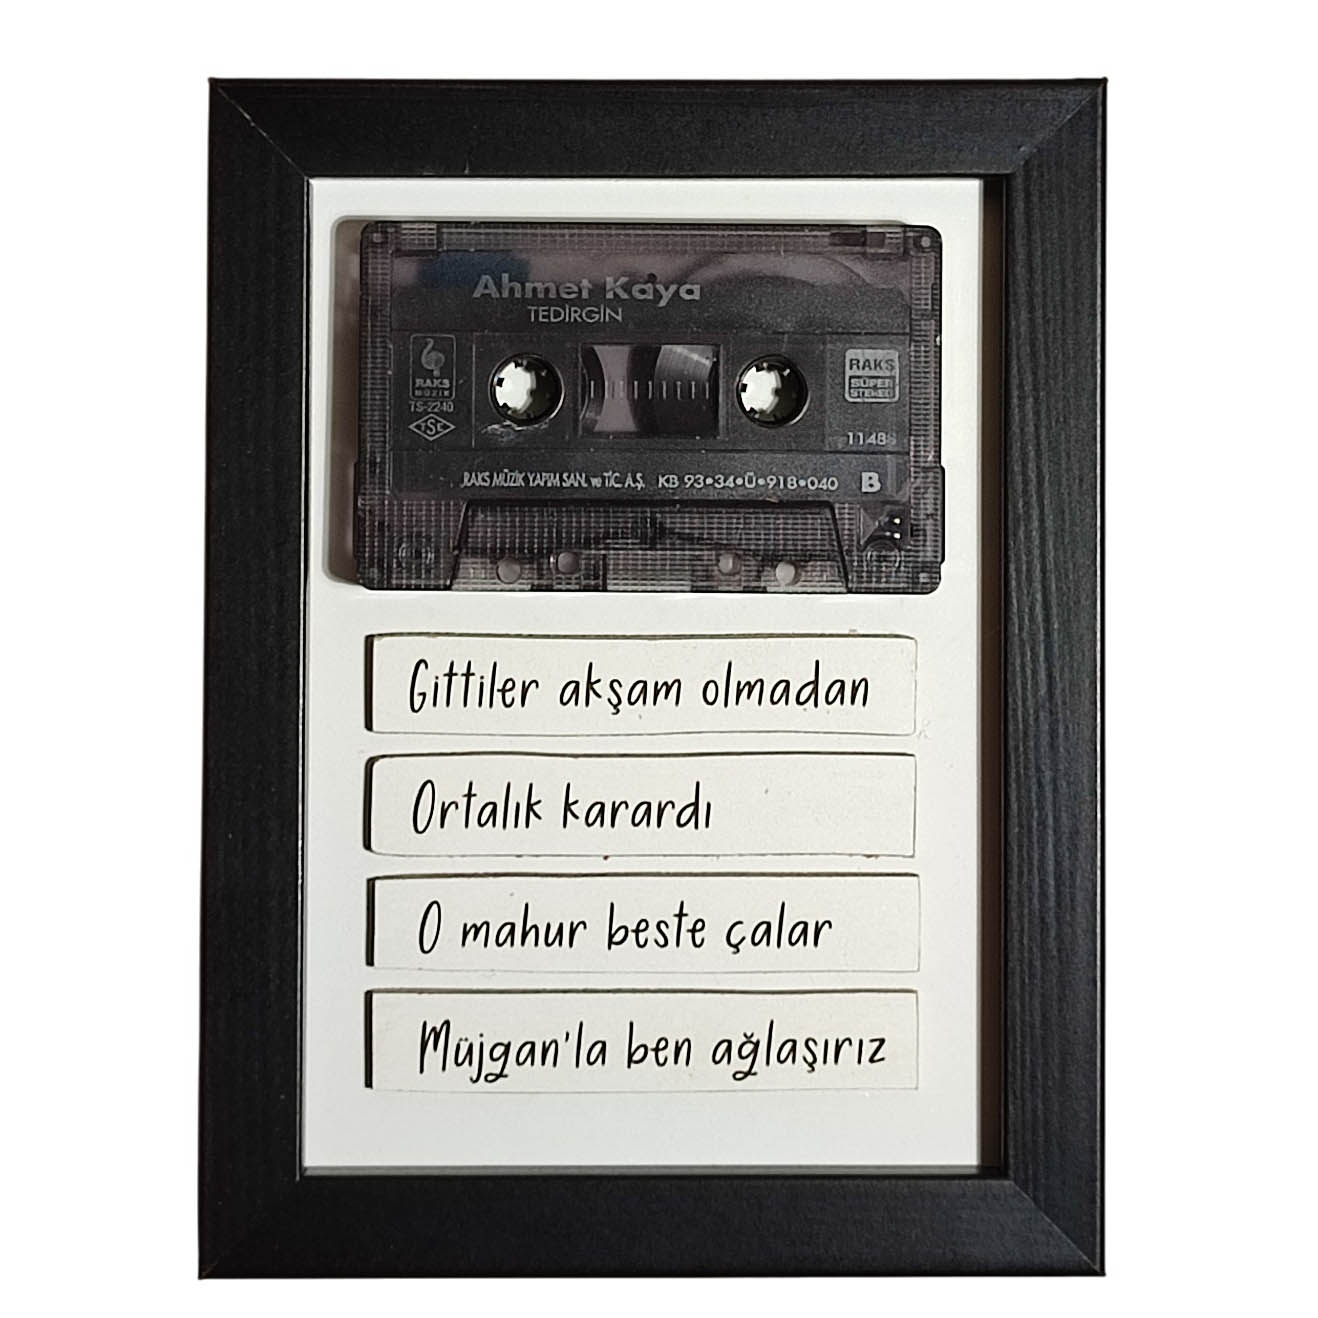 Ahmet Kaya
TEDİRGİN
RAKS
MÜZİK
TS-2240
TSE
RAKS
SÜPER
STEREO
RAKS MÜZİK YAPIM SAN. ve TİC. A.Ş. KB 93•34•Ü•918•040 B
Gittiler akşam olmadan
Ortalık karardı
O mahur beste çalar
Müjgan'la ben ağlaşırız